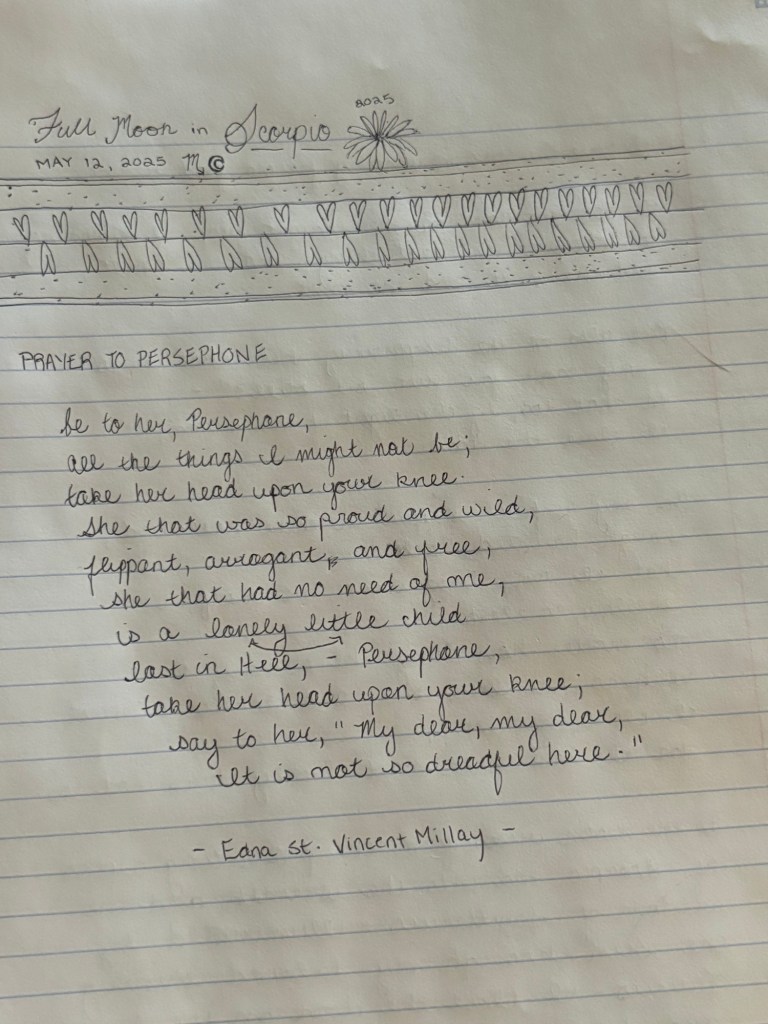 2025
Full Moon in Scorpio
MAY 12, 2025 ♏ ©
PRAYER TO PERSEPHONE
be to her, Persephone,
all the things I might not be;
take her head upon your knee.
she that was so proud and wild,
flippant, arrogant, and free,
she that had no need of me,
is a lonely little child
lost in Hell, - Persephone,
take her head upon your knee;
say to her, "My dear, my dear,
It is not so dreadful here."
- Edna St. Vincent Millay -